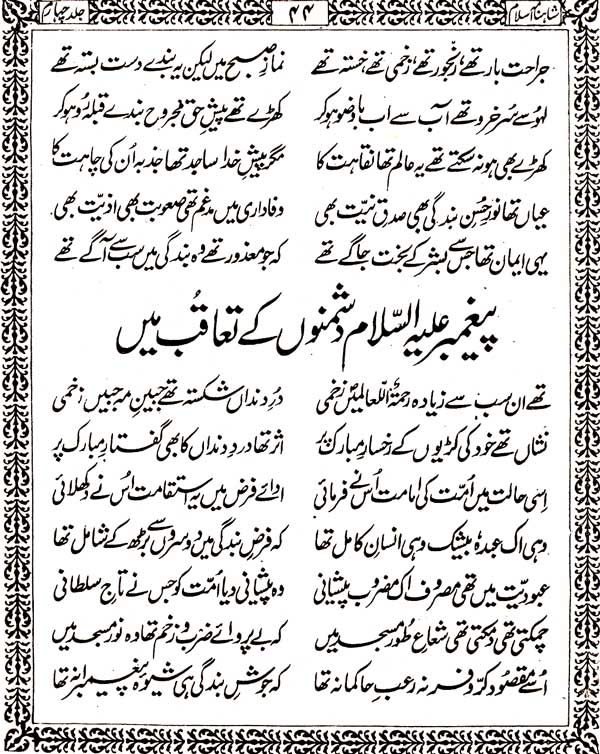 شاہنامۂ اسلام ۴۴ جلد چہارم
جراحت بار تھے، رنجور تھے، زخمی تھے، خستہ تھے نمازِ صبح میں لیکن یہ بندے دست بستہ تھے
لہو سے سُرخرو تھے آب سے اب با وضو ہو کر کھڑے تھے پیشِ حق مجروح بندے قبلہ رُو ہو کر
کھڑے بھی ہو نہ سکتے تھے یہ عالم تھا نقاہت کا مگر پیشِ خدا ساجد تھا جذبہ اُن کی چاہت کا
عیاں تھا نورِ حُسنِ بندگی بھی صدقِ نیت بھی وفاداری میں مدغم تھی صعوبت بھی اذیت بھی
یہی ایمان تھا جس سے بشر کے بخت جاگے تھے کہ جو معذور تھے وہ بندگی میں سب سے آگے تھے
پیغمبر علیہ السّلام دشمنوں کے تعاقُب میں
تھے ان سب سے زیادہ رحمۃُ اللّعالمیںؐ زخمی دُرِ دنداں شکستہ تھے جبینِ مہ جبیں زخمی
نشاں تھے خود کی کڑیوں کے رخسارِ مبارک پر اثر تھا دردِ دنداں کا بھی گفتارِ مبارک پر
اِسی حالت میں اُمّت کی اِمامت اُس نے فرمائی ادائے فرض میں یہ استقامت اُس نے دکھلائی
وہی اک عبدہٗ بیشک وہی انسانِ کامل تھا کہ فرضِ بندگی میں دوسروں سے بڑھ کے شامل تھا
عبودیّت میں تھی مصروف اک مضروب پیشانی وہ پیشانی دیا اُمّت کو جس نے تاجِ سلطانی
چمکتی تھی دمکتی تھی شعاعِ طُور مسجد میں کہ بے پروائے ضرب و زخم تھا وہ نور مسجد میں
اُسے مقصُود کرّ و فر نہ رعبِ حاکمانہ تھا کہ جوشِ بندگی ہی شیوۂ پیغمبرانہ تھا